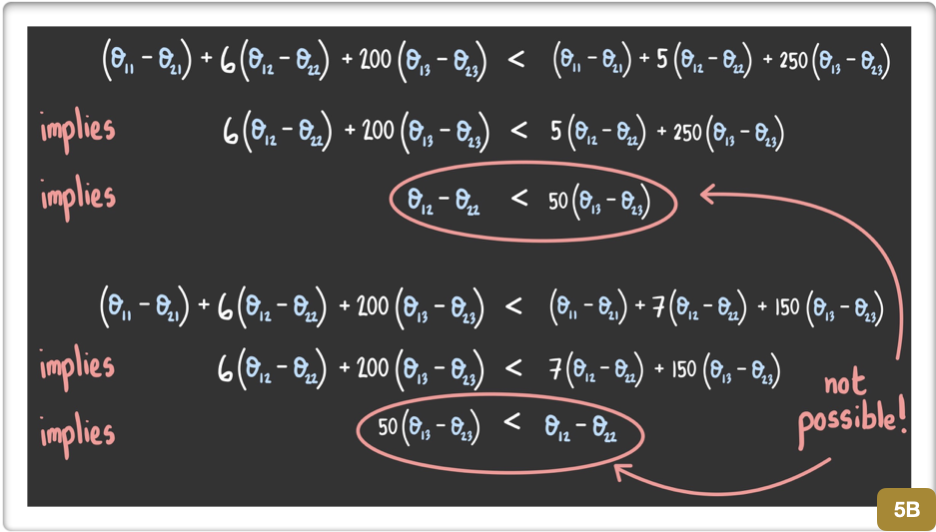 (θ₁₁ − θ₂₁) + 6(θ₁₂ − θ₂₂) + 200(θ₁₃ − θ₂₃) < (θ₁₁ − θ₂₁) + 5(θ₁₂ − θ₂₂) + 250(θ₁₃ − θ₂₃)
implies 6(θ₁₂ − θ₂₂) + 200(θ₁₃ − θ₂₃) < 5(θ₁₂ − θ₂₂) + 250(θ₁₃ − θ₂₃)
implies θ₁₂ − θ₂₂ < 50(θ₁₃ − θ₂₃)
(θ₁₁ − θ₂₁) + 6(θ₁₂ − θ₂₂) + 200(θ₁₃ − θ₂₃) < (θ₁₁ − θ₂₁) + 7(θ₁₂ − θ₂₂) + 150(θ₁₃ − θ₂₃)
implies 6(θ₁₂ − θ₂₂) + 200(θ₁₃ − θ₂₃) < 7(θ₁₂ − θ₂₂) + 150(θ₁₃ − θ₂₃)
implies 50(θ₁₃ − θ₂₃) < θ₁₂ − θ₂₂
not
possible!
5B